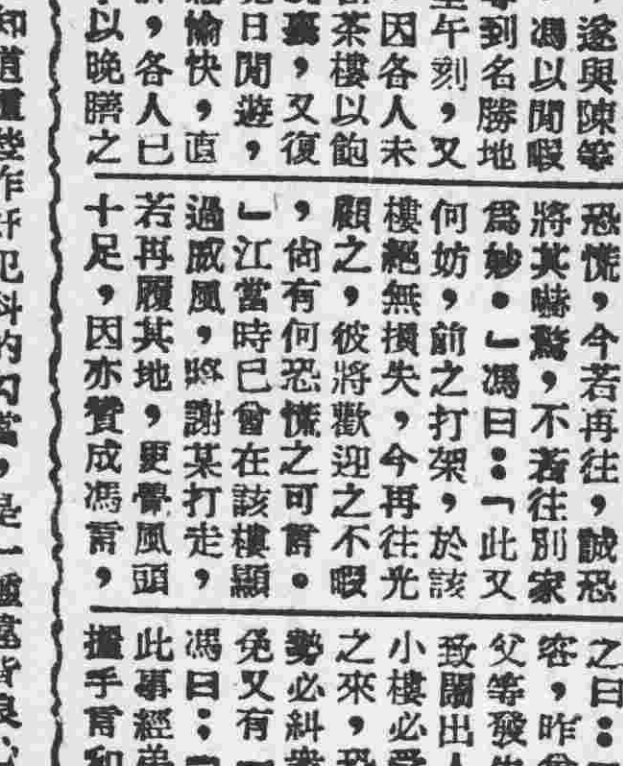 遂與陳等
馮以閒暇
等到名勝地
午刻，又
因各人未
茶樓以飽
，又復
日閒遊，
愉快，直
，各人已
以晚膳之
恐慌，今若再往，誠恐
將其嚇驚，不若往別家
爲妙。」馮曰：「此又
何妨，前之打架，於該
樓絕無損失，今再往光
顧之，彼將歡迎之不暇
，尙有何恐慌之可言。
」江當時已曾在該樓顯
過威風，將謝某打走，
若再履其地，更覺風頭
十足，因亦贊成馮言，
之曰：
容，昨曾
父等發生
致鬧出人
小樓必受
之來，恐
勢必糾衆
免又有
馮曰：「
此事經弟
握手言和
知道這些作奸犯科的勾當，是一種違背良心